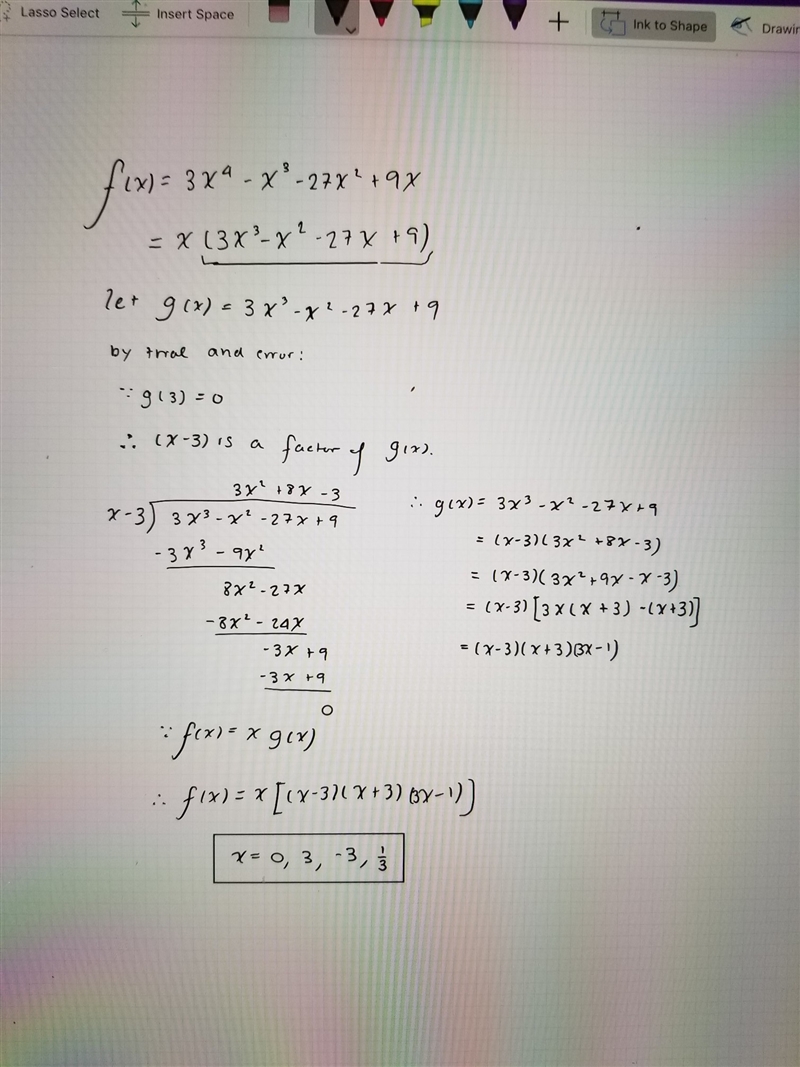 Lasso Select
Insert Space
Ink to Shape
Drawin
f(x) = 3x⁴ - x³ - 27x² + 9x
= x (3x³ - x² - 27x + 9)
let g(x) = 3x³ - x² - 27x + 9
by trial and error:
∵ g(3) = 0
∴ (x-3) is a factor of g(x).
3x² + 8x - 3
x-3) 3x³ - x² - 27x + 9
- 3x³ - 9x²
8x² - 27x
- 8x² - 24x
-3x + 9
-3x + 9
0
∴ g(x) = 3x³ - x² - 27x + 9
= (x-3)(3x² + 8x - 3)
= (x-3)(3x² + 9x - x - 3)
= (x-3)[3x(x + 3) - (x+3)]
= (x-3)(x+3)(3x-1)
∵ f(x) = x g(x)
∴ f(x) = x[(x-3)(x+3)(3x-1)]
x = 0, 3, -3, 1/3